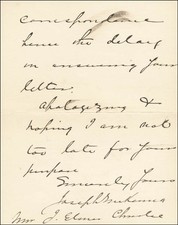 correspondence
hence the delay
in answering your
letter.
Apologizing &
hoping I am not
too late for your
purpose
Sincerely yours
Joseph McKenna
J. Elmer